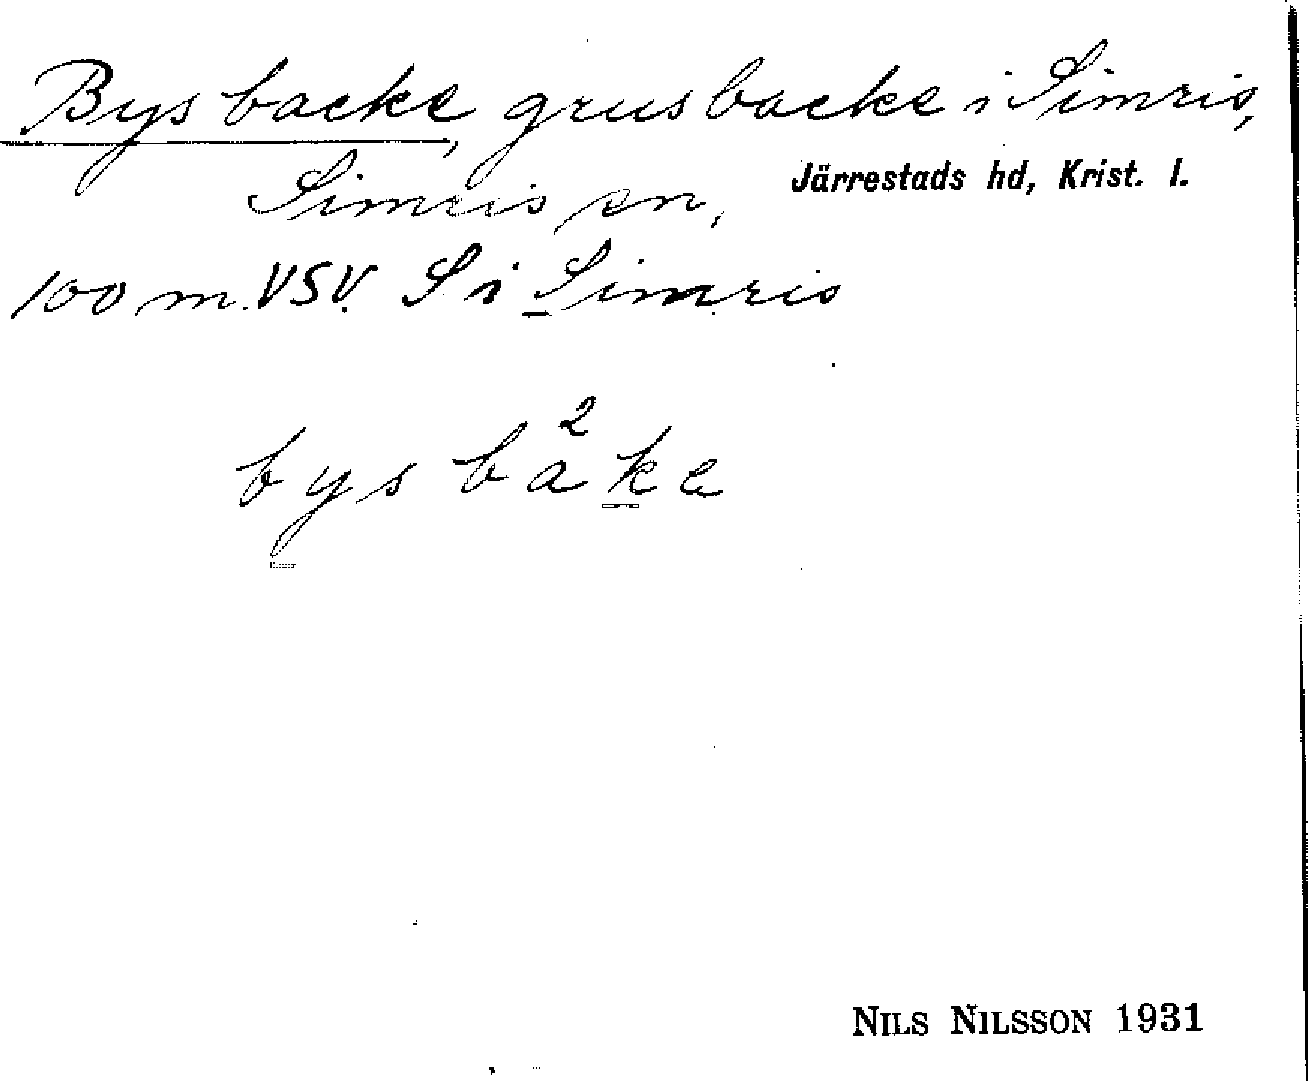 Bys backe, grusbacke i Simris,
Simris sn, Järrestads hd, Krist. l.
100 m. VSV. S i Simris
bys ba²ke
NILS NILSSON 1931